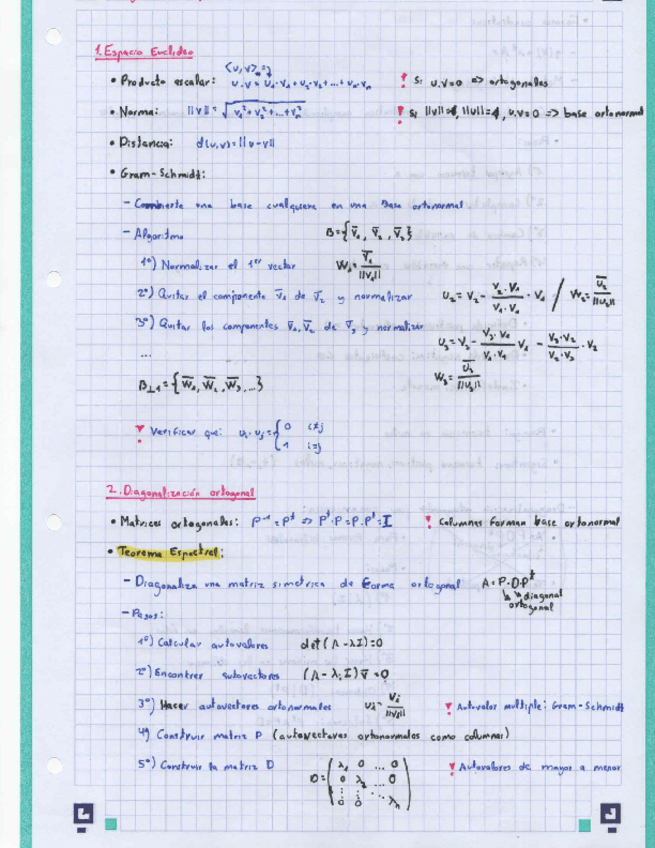 1. Espacio Euclídeo
⟨u,v⟩ =
• Producto escalar: u·v = u₁·v₁ + u₂·v₂ + ... + uₙ·vₙ ! Si u·v=0 => ortogonales
• Norma: ||v|| = √(v₁² + v₂² + ... + vₙ²) ! Si ||v||=1, ||u||=1, u·v=0 => base ortonormal
• Distancia: d(u,v) = ||u-v||
• Gram-Schmidt:
- Convierte una base cualquiera en una base ortonormal
- Algoritmo B={v̅₁, v̅₂, v̅₃}
1º) Normalizar el 1er vector W₁ = v̅₁/||v₁||
2º) Quitar el componente v̅₁ de v̅₂ y normalizar U₂ = V₂ - (V₂·V₁)/(V₁·V₁) · V₁ / W₂ = u̅₂/||u₂||
3º) Quitar los componentes v̅₁, v̅₂ de v̅₃ y normalizar U₃ = V₃ - (V₃·V₁)/(V₁·V₁) · V₁ - (V₃·V₂)/(V₂·V₂) · V₂
... W₃ = u̅₃/||u₃||
B⊥₁ = {W̅₁, W̅₂, W̅₃, ...}
! Verificar que: uᵢ·uⱼ = { 0 i≠j
1 i=j
2. Diagonalización ortogonal
• Matrices ortogonales: P⁻¹ = Pᵗ => Pᵗ·P = P·Pᵗ = I ! Columnas forman base ortonormal
• Teorema Espectral:
- Diagonaliza una matriz simétrica de forma ortogonal A = P·D·Pᵗ
diagonal
ortogonal
- Pasos:
1º) Calcular autovalores det(A - λI) = 0
2º) Encontrar autovectores (A - λᵢI) v̅ = 0
3º) Hacer autovectores ortonormales uᵢ = vᵢ/||vᵢ|| ! Autovalor multiple: Gram-Schmidt
4º) Construir matriz P (autovectores ortonormales como columnas)
5º) Construir la matriz D D = (λ₁ 0 ... 0 ! Autovalores de mayor a menor
0 λ₂ ... 0
⋮ ⋮ ⋱ ⋮
0 0 λₙ)